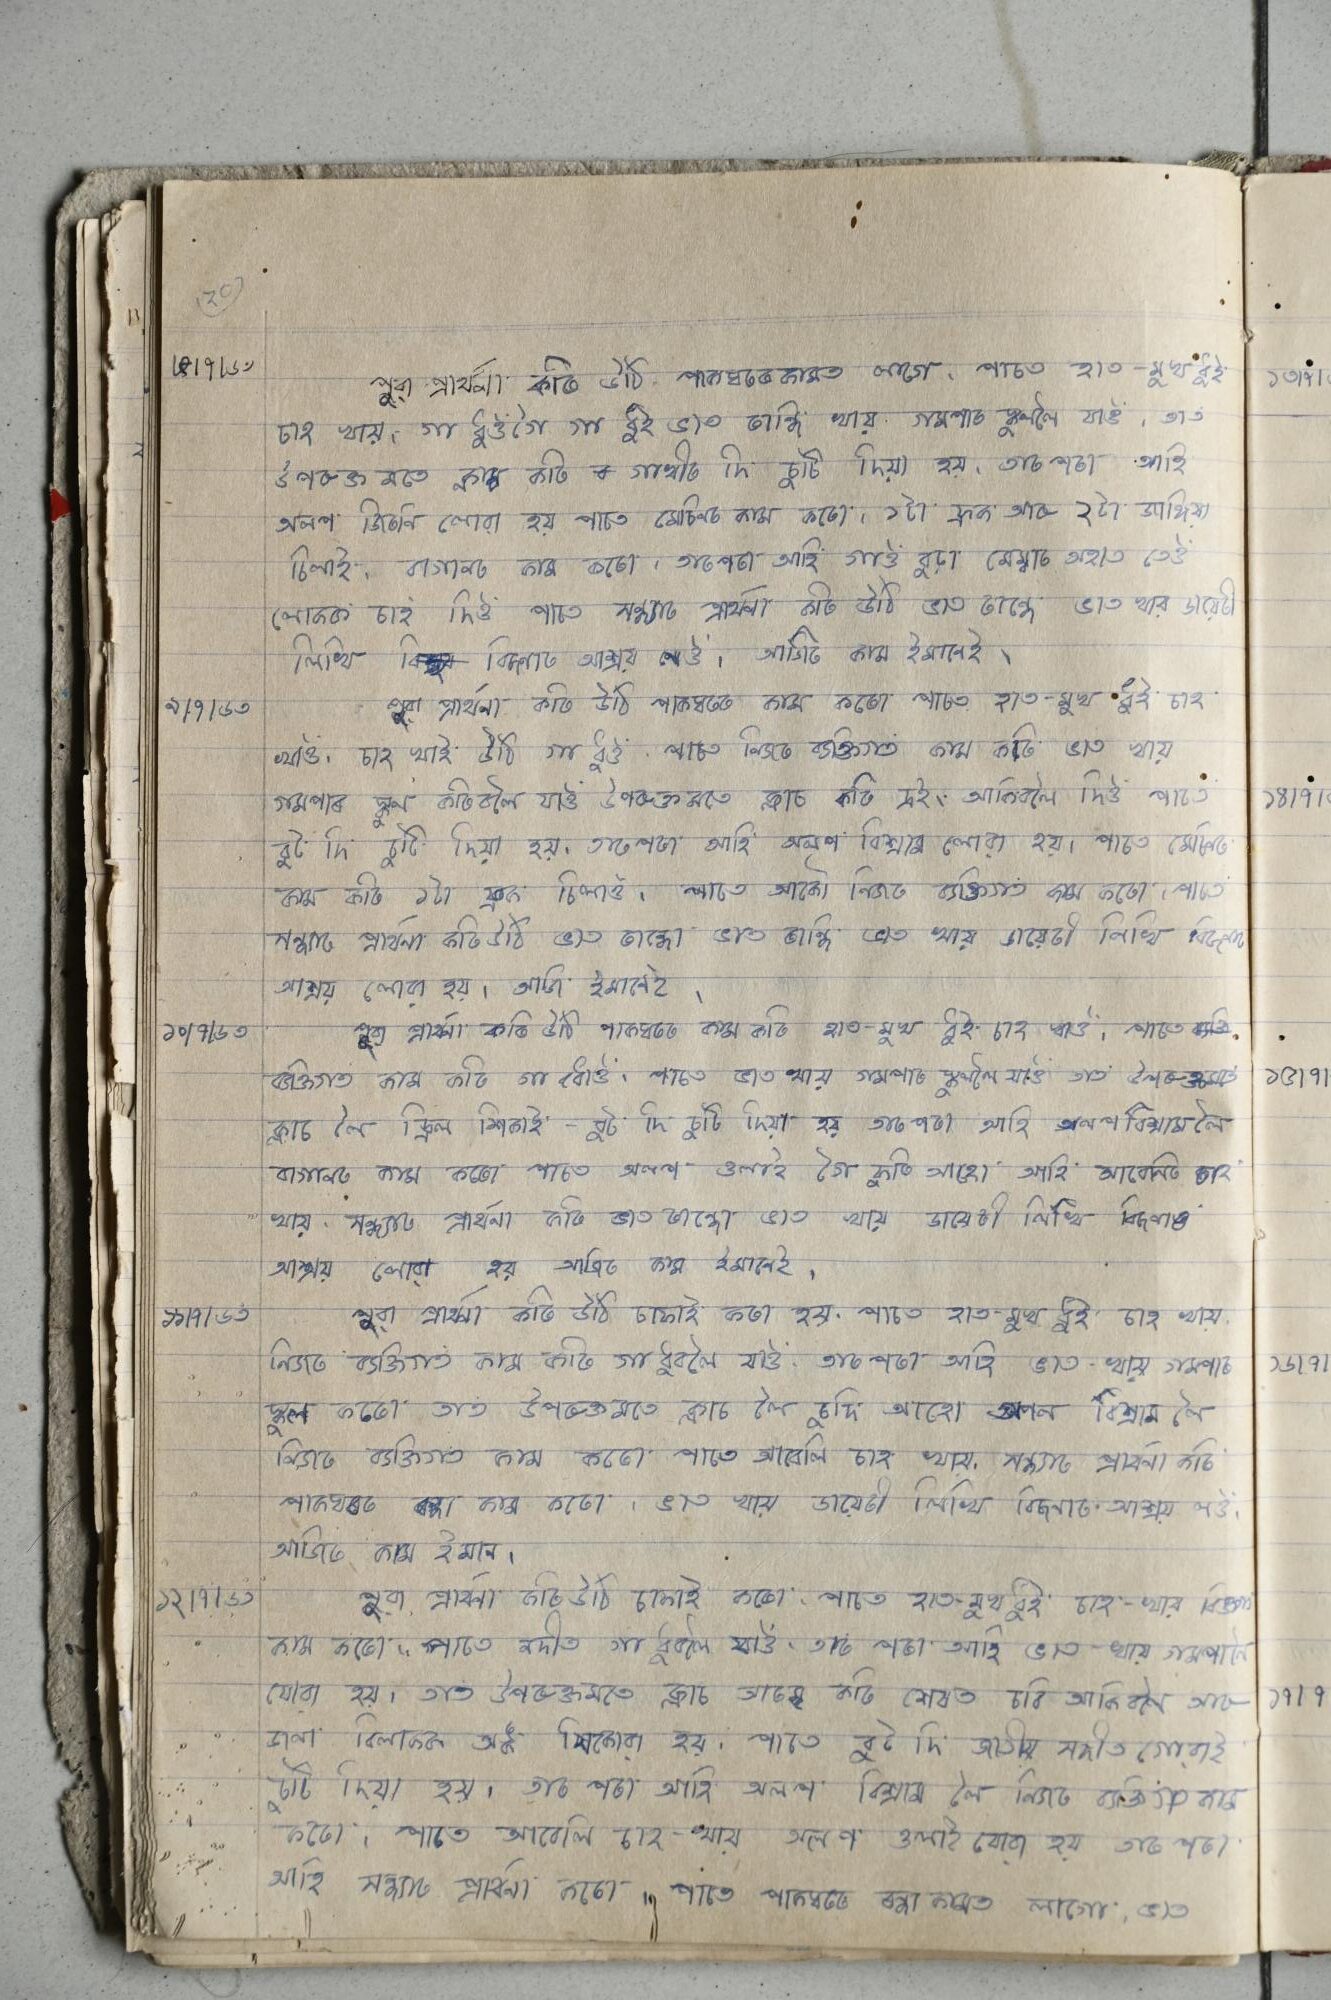 (২০)
৮/৭/৬৩ পুৱা প্ৰাৰ্থনা কৰি উঠি পাকঘৰত কামত লাগো। পাচত হাত-মুখ ধুই
চাহ খায়। গা ধুওঁগৈ গা ধুই ভাত ৰান্ধি খায় গমপাৰ স্কুললৈ যাওঁ। তাত
উপৰুক্ত মতে ক্লাচ কৰি গাখীৰ দি ছুটি দিয়া হয়। তাৰ পৰা আহি
অলপ জিৰনি লোৱা হয় পাচত মেচিনত কাম কৰো। ১টা ফ্ৰক আৰু ২টা জাঙ্গিয়া
চিলাই। বাগানত কাম কৰো। তাৰ পৰা আহি গাওঁ বুঢ়া মেম্বাৰ অহাত তেওঁ
লোকক চাহ দিওঁ পাচত সন্ধ্যাত প্ৰাৰ্থনা কৰি উঠি ভাত ৰান্ধো ভাত খায় ডায়েৰী
লিখি বিছনাত আশ্ৰয় লওঁ। আজিৰ কাম ইমানেই।
৯/৭/৬৩ পুৱা প্ৰাৰ্থনা কৰি উঠি পাকঘৰত কাম কৰো পাচত হাত-মুখ ধুই চাহ
খাওঁ। চাহ খাই উঠি গা ধুওঁ পাচত নিজৰ ব্যক্তিগত কাম কৰি ভাত খায়
গমপাৰ স্কুল কৰিবলৈ যাওঁ উপৰুক্তমতে ক্লাচ কৰি দুই। আকিবলৈ দিওঁ পাচত
বুট দি ছুটি দিয়া হয়। তাৰ পৰা আহি অলপ বিশ্ৰাম লোৱা হয়। পাচত মেচিনত
কাম কৰি ১টা ফ্ৰক চিলাওঁ। পাচত আকৌ নিজৰ ব্যক্তিগত কাম কৰো। পাচত
সন্ধ্যাত প্ৰাৰ্থনা কৰি উঠি ভাত ৰান্ধো ভাত ৰান্ধি ভাত খায় ডায়েৰী লিখি বিছনাত
আশ্ৰয় লোৱা হয়। আজি ইমানেই।
১০/৭/৬৩ পুৱা প্ৰাৰ্থনা কৰি উঠি পাকঘৰত কাম কৰি হাত-মুখ ধুই চাহ খাওঁ। পাচত
ব্যক্তিগত কাম কৰি গা ধোওঁ। পাচত ভাত খায় গমপাৰ স্কুললৈ যাওঁ তাত উপৰুক্তমতে
ক্লাচ লৈ ড্ৰিল শিকাই - বুট দি ছুটি দিয়া হয় তাৰ পৰা আহি অলপ বিশ্ৰাম লৈ
বাগানত কাম কৰো পাচত অলপ ওলাই গৈ ফুৰি আহো আহি আবেলি চাহ
খায়। সন্ধ্যাত প্ৰাৰ্থনা কৰি ভাত ৰান্ধো ভাত খায় ডায়েৰী লিখি বিছনাত
আশ্ৰয় লোৱা হয় আজিৰ কাম ইমানেই।
১১/৭/৬৩ পুৱা প্ৰাৰ্থনা কৰি উঠি চাফাই কৰা হয়। পাচত হাত-মুখ ধুই চাহ খায়।
নিজৰ ব্যক্তিগত কাম কৰি গা ধুবলৈ যাওঁ। তাৰ পৰা আহি ভাত-খায় গমপাৰ
স্কুল কৰো তাত উপৰুক্তমতে ক্লাচ লৈ ছুটি আহো অলপ বিশ্ৰাম লৈ
নিজৰ ব্যক্তিগত কাম কৰো পাচত আবেলি চাহ খায়। সন্ধ্যাত প্ৰাৰ্থনা কৰি
পাকঘৰত ৰন্ধা কাম কৰো। ভাত খায় ডায়েৰী লিখি বিছনাত আশ্ৰয় লওঁ।
আজিৰ কাম ইমান।
১২/৭/৬৩ পুৱা প্ৰাৰ্থনা কৰি উঠি চাফাই কৰো। পাচত হাত-মুখ ধুই চাহ-খায়
কাম কৰো। পাচত নদীত গা ধুবলৈ যাওঁ। তাৰ পৰা আহি ভাত-খায় গমপালৈ
যোৱা হয়। তাত উপৰুক্তমতে ক্লাচ আৰম্ভ কৰি শেষত ছবি আকিবলৈ আৰু
ডানা বিলাকক অঙ্ক শিকোৱা হয়। পাচত বুট দি জাতীয় সঙ্গীত গোৱাই
ছুটি দিয়া হয়। তাৰ পৰা আহি অলপ বিশ্ৰাম লৈ নিজৰ ব্যক্তিগত কাম
কৰো। পাচত আবেলি চাহ-খায় অলপ ওলাই যোৱা হয় তাৰ পৰা
আহি সন্ধ্যাত প্ৰাৰ্থনা কৰো। পাচত পাকঘৰত ৰন্ধা কামত লাগো। ভাত
১৩/৭/
১৪/৭/
১৫/৭/
১৬/৭/
১৭/৭